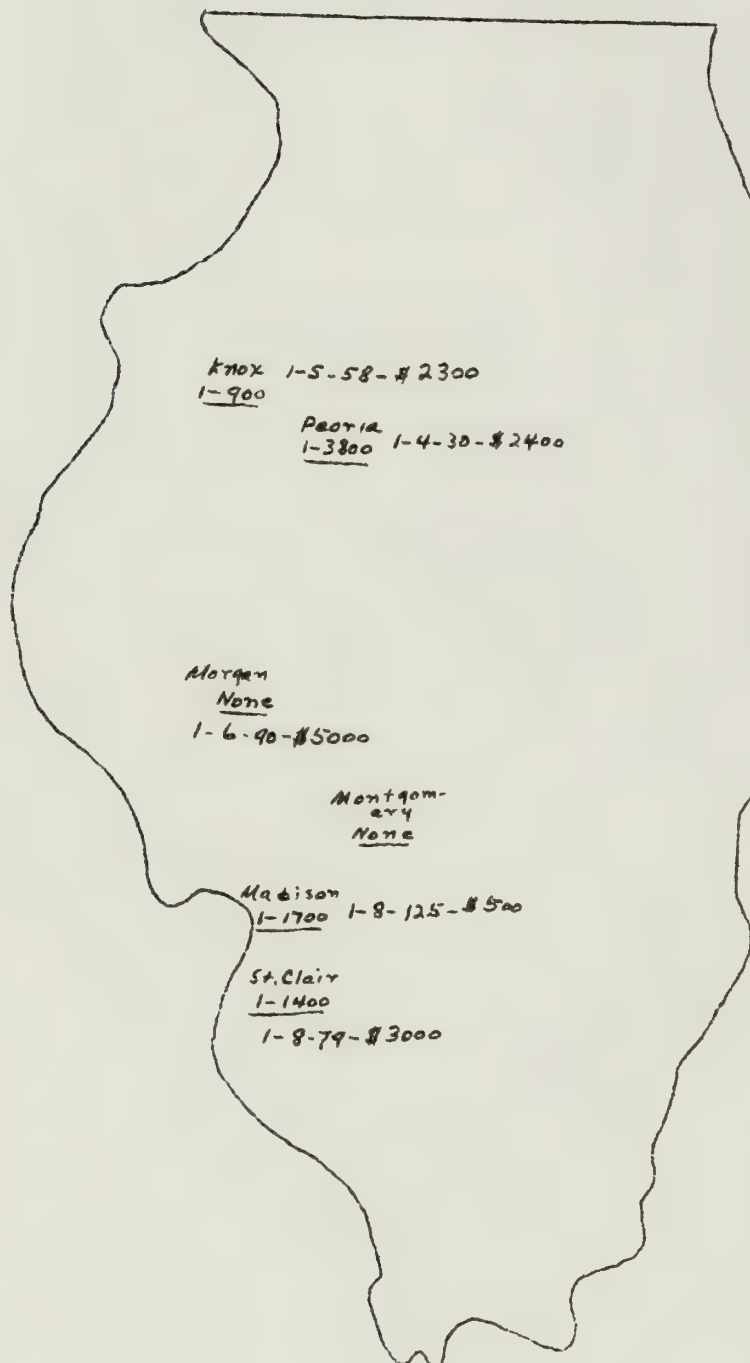 Knox 1-5-58-$2300
1-900
Peoria
1-3800 1-4-30-$2400
Morgan
None
1-6-90-$5000
Montgom-
ery
None
Madison
1-1700 1-8-125-$500
St. Clair
1-1400
1-8-79-$3000